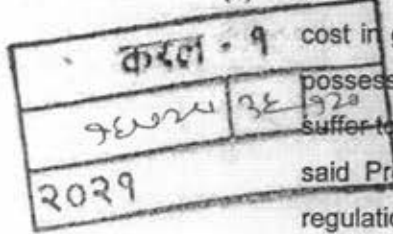 करल - १
३६ १२०
२०२१
cost in
possess
suffer to
said Pr
regulatio